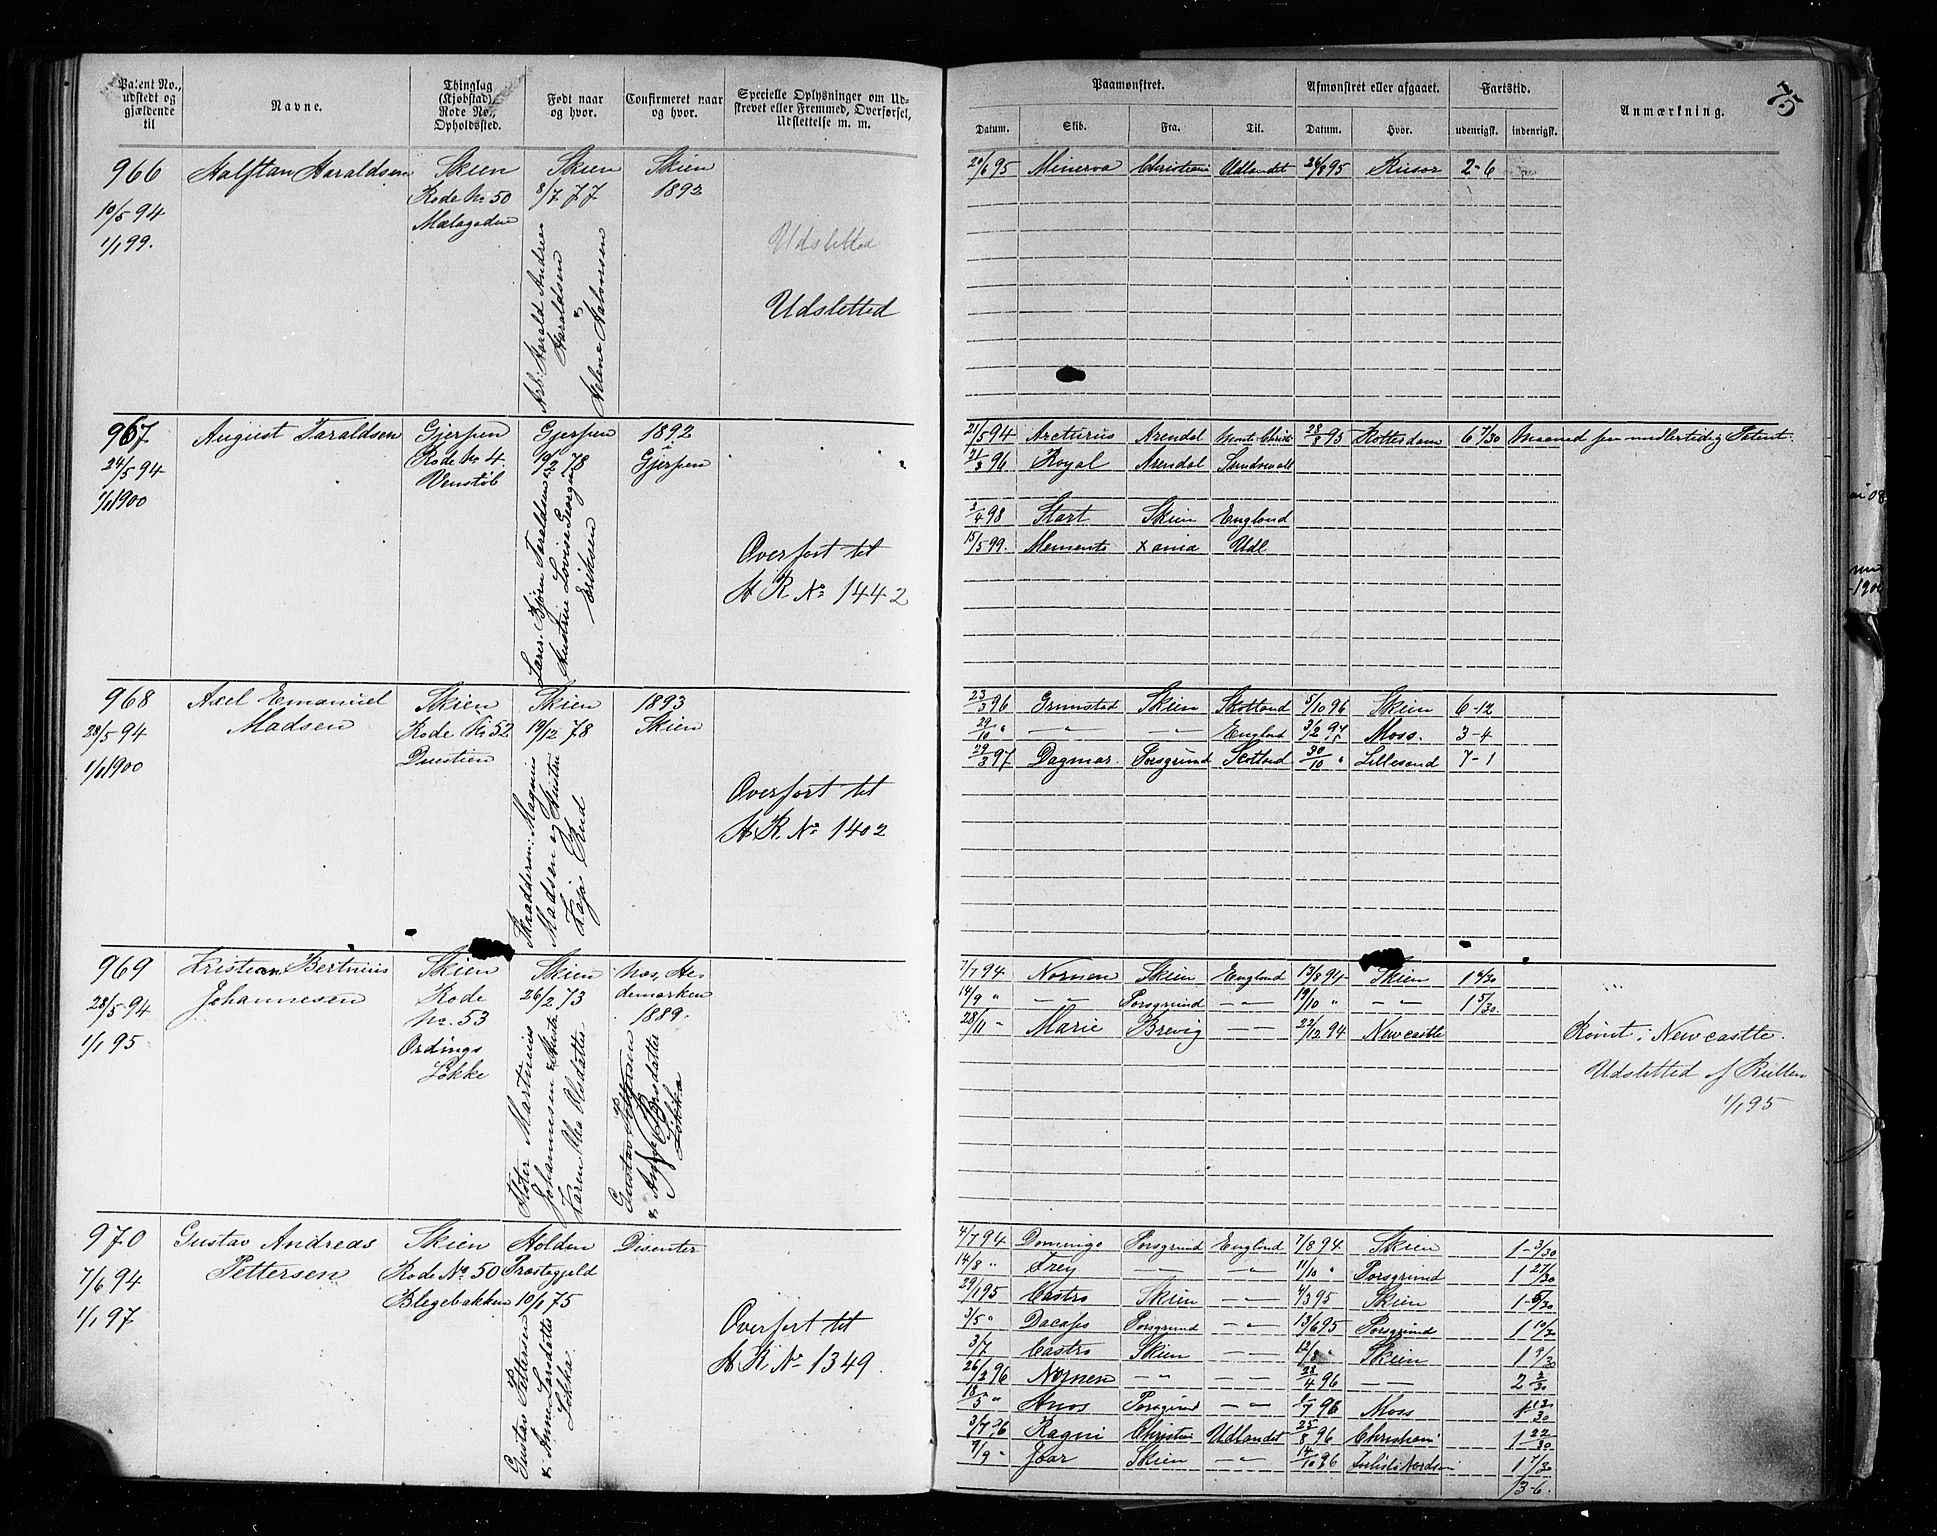 75
Patent No., udstedt og gjældende til
Navne.
Thinglag (Kjøbstad), Rode No., Opholdssted.
Født naar og hvor.
Confirmeret naar og hvor.
Specielle Oplysninger om Udskrevet eller Fremmed, Overførsel, Udslettelse m. m.
Paamønstret.
Afmønstret eller afgaaet.
Fartstid.
Anmærkning.
Datum. Skib. Fra. Til. Datum. Hvor. udenrigsk. indenrigsk.
966 Halftan Haraldsen Skien Skien Skien
10/5 94 Rode No 50 8/7 77 1892
1/1 99. Mælagaden
Arb: Harald Andreas
Haraldsen
&
Helene Halvorsen
Udsletted
Udsletted
20/6 95 Minerva Christiania Udlandet 26/8 95 Risør 2-6
967 August Taraldsen Gjerpen Gjerpen 1892
24/5 94 Rode No 4. 19/2 78 Gjerpen
1/1 1900 Venstøb
Lærer Bjørn Taraldsen &
Austrine Lovise Georgine
Eriksen
Overført til
H R No 1442
21/5 94 Arcturus Arendal Monte Christi 23/8 95 Rotterdam 6 7/30 Maaned paa midlertidig Patent.
21/3 96 Royal Arendal Sundsvall
3/4 98 Start Skien England
15/5 99. Memento Xania Udl
968 Axel Emanuel Skien Skien 1893
28/5 94 Madsen Rode No 52 19/12 78 Skien
1/1 1900 Duestien
Skræddersv. Magnus
Madsen og Hustru
Kaja Rud
Overført til
H. R. No 1402
23/3 96 Grimstad Skien Skotland 5/10 96 Skien 6-12
29/10 " — " — — " — England 3/2 97 Moss. 3-4
29/3 97 Dagmar Porsgrund Scotland 30/10 " Lillesand 7-1
969 Kristian Bertinius Skien Skien Næs, He-
28/5 94 Johannesen Rode 26/2 73 demarken
1/1 95 No. 53 1889.
Ordings
Løkke
Martinius
Johannesen & Hustr.
Karen Olsdatter
Gustav Pettersen
& Anne Larsdatter
Løkka
7/7 94 Nornen Skien England 13/8 94 Skien 1 6/30
14/9 " — " — Porsgrund — " — 19/10 " — " — 1 5/30
28/11 " Marie Brevig — " — 22/12 94 Newcastle
Rømt i Newcastle.
Udsletted af Rullen
1/1 95
970 Gustav Andreas Skien Holden Disenter
7/6 94 Pettersen Rode No 50 Præstegjeld
1/1 97 Blegebakken 10/1 75
Gustav Pettersen
& Anne Larsdatter
Løkka.
Overført til
H R No 1349.
4/7 94 Domingo Porsgrund England 7/8 94 Skien 1-3/30
14/8 " Frey — " — — " — 11/10 " Porsgrund 1 27/30
29/1 95 Castro Skien — " — 4/3 95 Skien 1-5/30
3/5 " Porsgrund — " — 13/6 95 Porsgrund 1 10/30
3/7 Castro Skien — " — 12/8 " Skien 1 9/30
26/2 96 Nornen — " — — " — 28/4 96 — " — 2 2/30
18/5 " Amos Porsgrund — " — 1/7 96 Moss
3/7 96 Ragni Christia Udlandet 25/8 96 Christiani 1 22/30
9/9 " Joar Skien — " — 14/10 96 1 7/30
13-6.